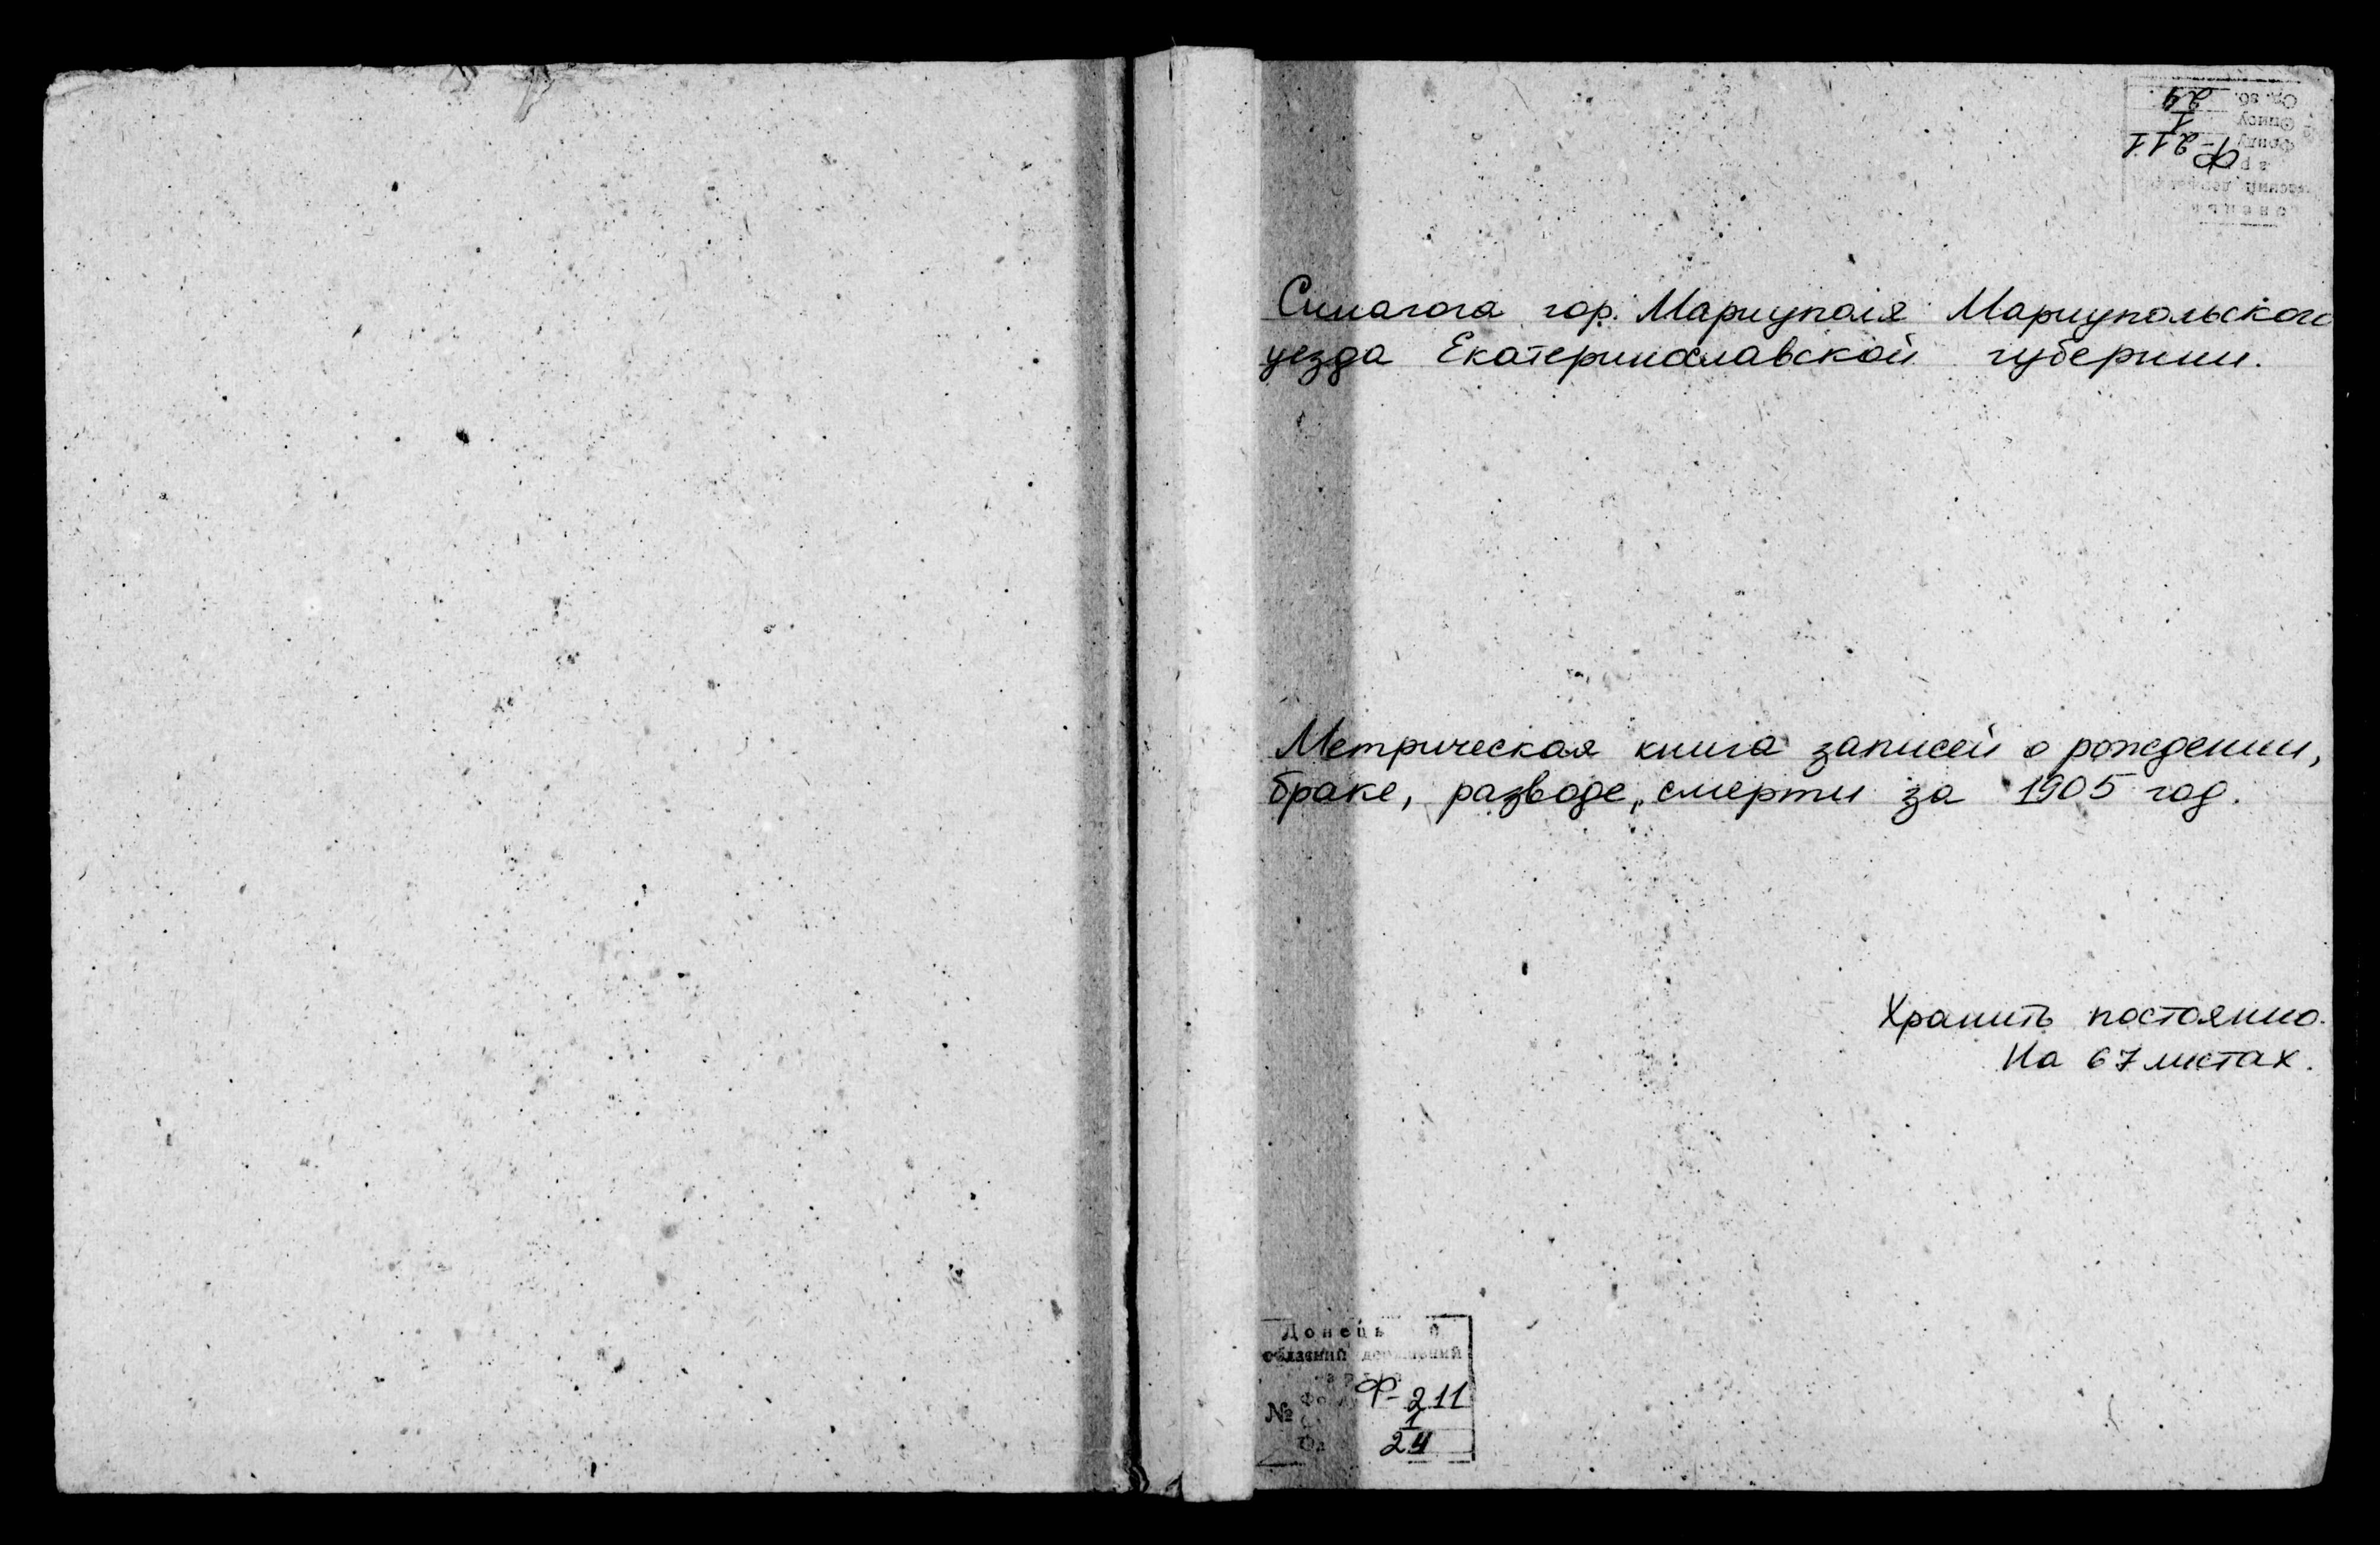 Од. зб. 24
Опису 1
Фонду Ф-211
Синагога гор. Мариуполя Мариупольского
уезда Екатеринославской губернии.
Метрическая книга записей о рождении,
браке, разводе, смерти за 1905 год.
Хранить постоянно.
На 67 листах.
обласний державний
№ Ф-211
1
24